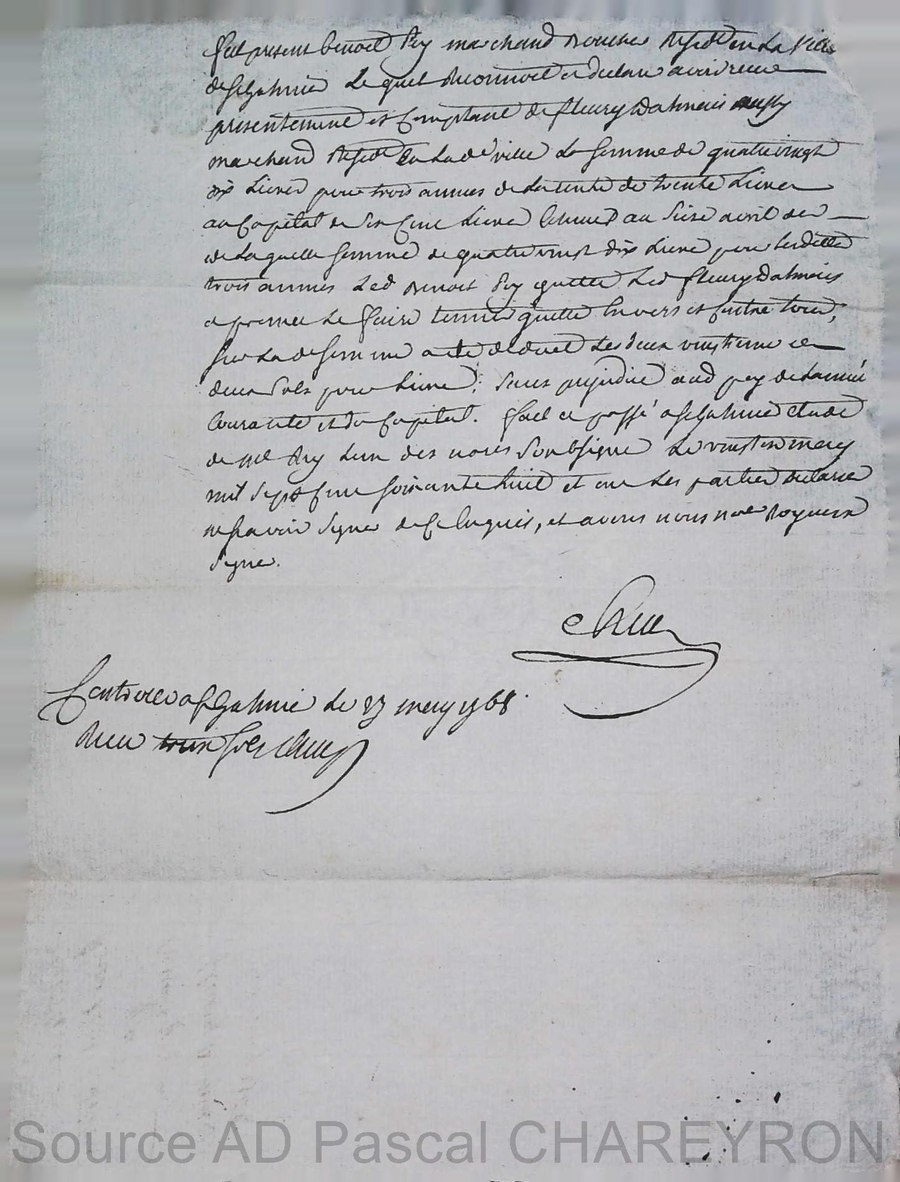 fut present benoit Pey marchand Boucher Resid^t en La ville
de st Galmier Lequel Reconnoit et declare avoir receu
presentement et comptant de fleury Dalmais aussy
marchand Resid^t en Lad^e ville La somme de quatre vingt
dix Livres pour trois années de La rente de trente Livres
au Capital de six Cent Livres Echues au seize avril der
de Laquelle somme de quatre vingt dix Livres pour Lesdittes
trois années Led Benoit Pey quitte Led fleury Dalmais
et promet Le faire tenir quitte Envers et Contre tous,
sur La de somme a ete deduit Les deux vingtieme et
deux sols pour Livre; sans prejudice aud pey de Lannée
Courante et du Capital. fait et passé a st Galmier etude
de me Rey Lun des nores soubsigné Le vingt six mary
mil sept Cent soixante huit et ont Les parties declaré
ne savoir signer de ce Enquis, et avons nous no^re Royaux
signé.
Rey
Controllé a st Galmier le 27 mars 1768
Recu treize sols
Source AD Pascal CHAREYRON